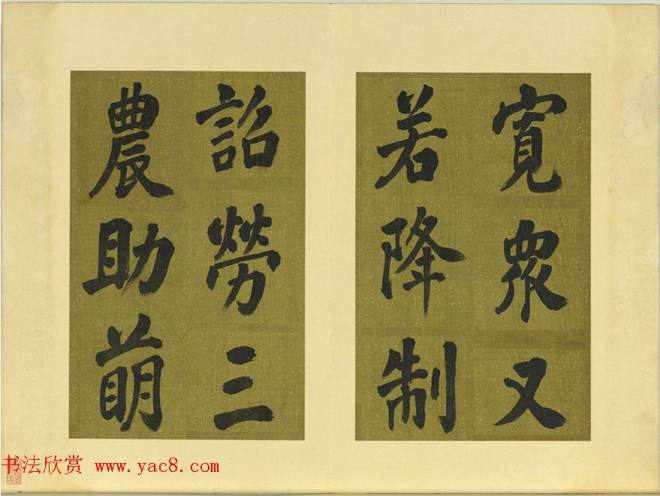 寬衆又
若降制
詔勞三
農助萌
书法欣赏 www.yac8.com